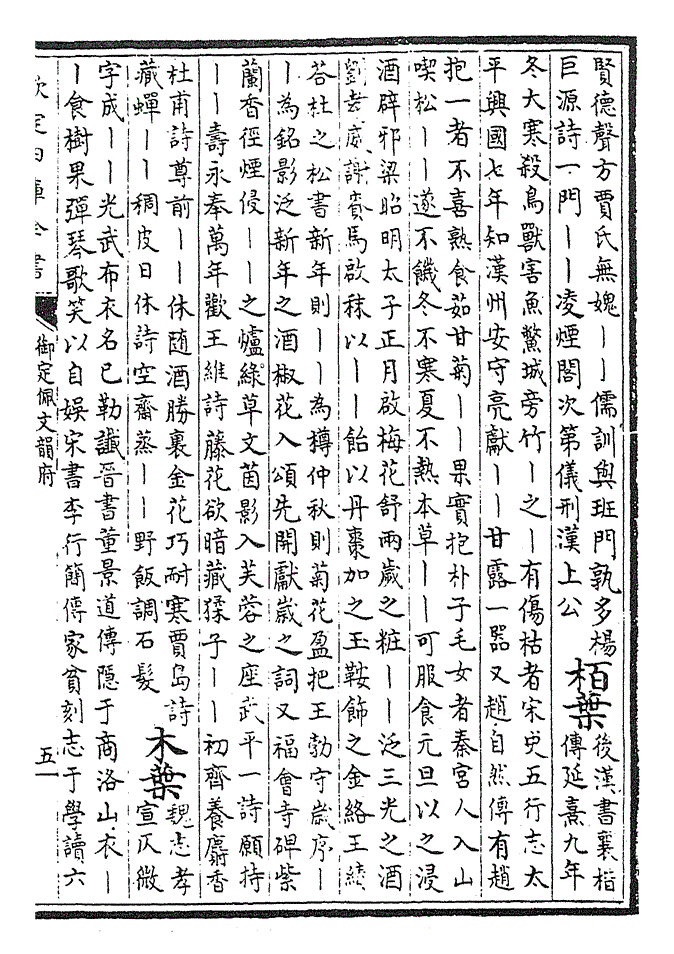 賢德聲方賈氏無媿——儒訓與班門孰多楊
巨源詩一門——凌煙閣次第儀刑漢上公
栢葉
後漢書襄楷
傳延熹九年
冬大寒殺鳥獸害魚鱉城旁竹—之—有傷枯者宋史五行志太
平興國七年知漢州安守亮獻——甘露一器又趙自然傳有趙
抱一者不喜熟食茹甘菊——果實抱朴子毛女者秦宮人入山
喫松——遂不饑冬不寒夏不熱本草——可服食元旦以之浸
酒辟邪梁昭明太子正月啟梅花舒兩歲之粧——泛三光之酒
劉孝威謝賚馬啟秣以——飴以丹棗加之玉鞍飾之金絡王績
答杜之松書新年則——為樽仲秋則菊花盈把王勃守歲序—
—為銘影泛新年之酒椒花入頌先開獻歲之詞又福會寺碑紫
蘭香徑煙侵——之爐綠草文茵影入芙蓉之座武平一詩願持
——壽永奉萬年歡王維詩藤花欲暗藏猱子——初齊養麝香
杜甫詩尊前——休随酒勝裏金花巧耐寒賈島詩
藏蟬——稠皮日休詩空齋蒸——野飯調石髮
木葉
魏志孝
宣仄微
字成——光武布衣名已勒讖晉書董景道傳隱于商洛山衣—
—食樹果彈琴歌笑以自娛宋書李行簡傳家貧刻志于學讀六
欽定四庫全書
御定佩文韻府
五一